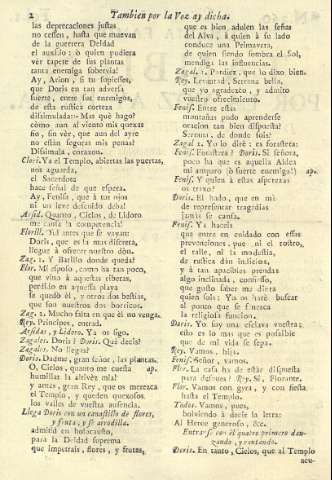 2 Tambien por la Voz ay dicha.
las deprecaciones justas
no cessen, hasta que muevan
de la guerrera Deidad
el auxilio: ò quien pudiera
ser tapete de sus plantas
tanta enemiga sobervia!
Ay, Arion, si tu supiesses,
que Doris en tan adversa
suerte, entre sus enemigos,
de esta rustica corteza
dissimulada:- Mas què hago?
còmo aun al viento mis quexas
fio, sin vèr, que aun del ayre
no estàn seguras mis penas?
Dissimula, corazon.
Clori. Ya el Templo, abiertas las puertas,
nos aguarda,
el Sacerdote
hace señal de espera.
Ay, Fenisa, que à tus ojos
ni un leve descuido deba!
Arsid. Quanto, Cielos, de Lidoro
me causa la competencia!
Florill. Yà antes que se vayan:
Doris, que es la mas discreta,
llegue à ofrecer nuestro dòn.
Zag. 1. Y Barsilo donde queda?
Flor. Mi esposo, como ha tan poco,
que vino à aquestas riberas,
perdido en aquessa playa
se quedò èl, y otros dos bestias,
que son nuestros dos borricos.
Zag. 2. Mucho falta en èl no venga.
Rey. Principes, entrad.
Arsidas, y Lidoro. Ya os sigo.
Zagales. Doris! Doris. Què decis?
Zagales. No llegas?
Doris. Dadme, gran señor, las plantas.
O, Cielos, quanto me cuesta ap.
humillar la altivèz mia!
y antes, gran Rey, que os merezca
el Templo, y queden quexosos
los valles de vuestra ausencia.
Llega Doris con un canastillo de flores,
y fruta, y se arrodilla.
admitid no holocausto,
para la Deidad suprema
que impetrais, flores, y frutas,
que es bien adulen las señas
del Alva, à quien à su lado
conduce una Primavera,
de quien siendo sombra el Sol,
mendiga las influencias.
Zagal. 1. Pardiez, que lo dixo bien.
Rey. Levantad, Serrana bella,
que yo agradezco, y admito
vuestro ofrecimiento.
Fenis. Entre estas
montañas pudo aprenderse
oracion tan bien dispuesta?
Serrana, de donde sois?
Zagal 2. Yo lo dirè: es forastera.
Fenis. Forastera? Doris. Si señora,
poco ha que es aquella Aldea
mi amparo (ò suerte enemiga!) ap.
Fenis. Y quien à estas asperezas
os traxo?
Doris. El hado, que en mì
de representar tragedias
jamàs se cansa.
Fenis. Ya haceis
que entre en cuidado con essas
prevenciones, pues ni el rostro,
el talle, ni la modestia,
de rustica dàn indicios,
y à tan apacibles prendas
algo inclinada, confiesso,
que gusto saber me diera
quien sois: Yo os harè buscar
al punto que se fenezca
la religiosa funcion.
Doris. Yo soy una esclava vuestra;
esto es lo mas que es possible
que de mi vida se sepa.
Rey. Vamos, hija.
Fenis. Señor, vamos.
Flor. La casa ha de estàr dispuesta
para despues? Rey. Sì, Florante.
Flor. Vamos con gyra, y con fiesta
hasta el Templo.
Todos. Vamos, pues,
bolviendo à decir la letra:
Al Heroe generoso, &c.
Entranse con el quatro primero danzando,
y cantando.
Doris. En tanto, Cielos, que al Templo
acu-